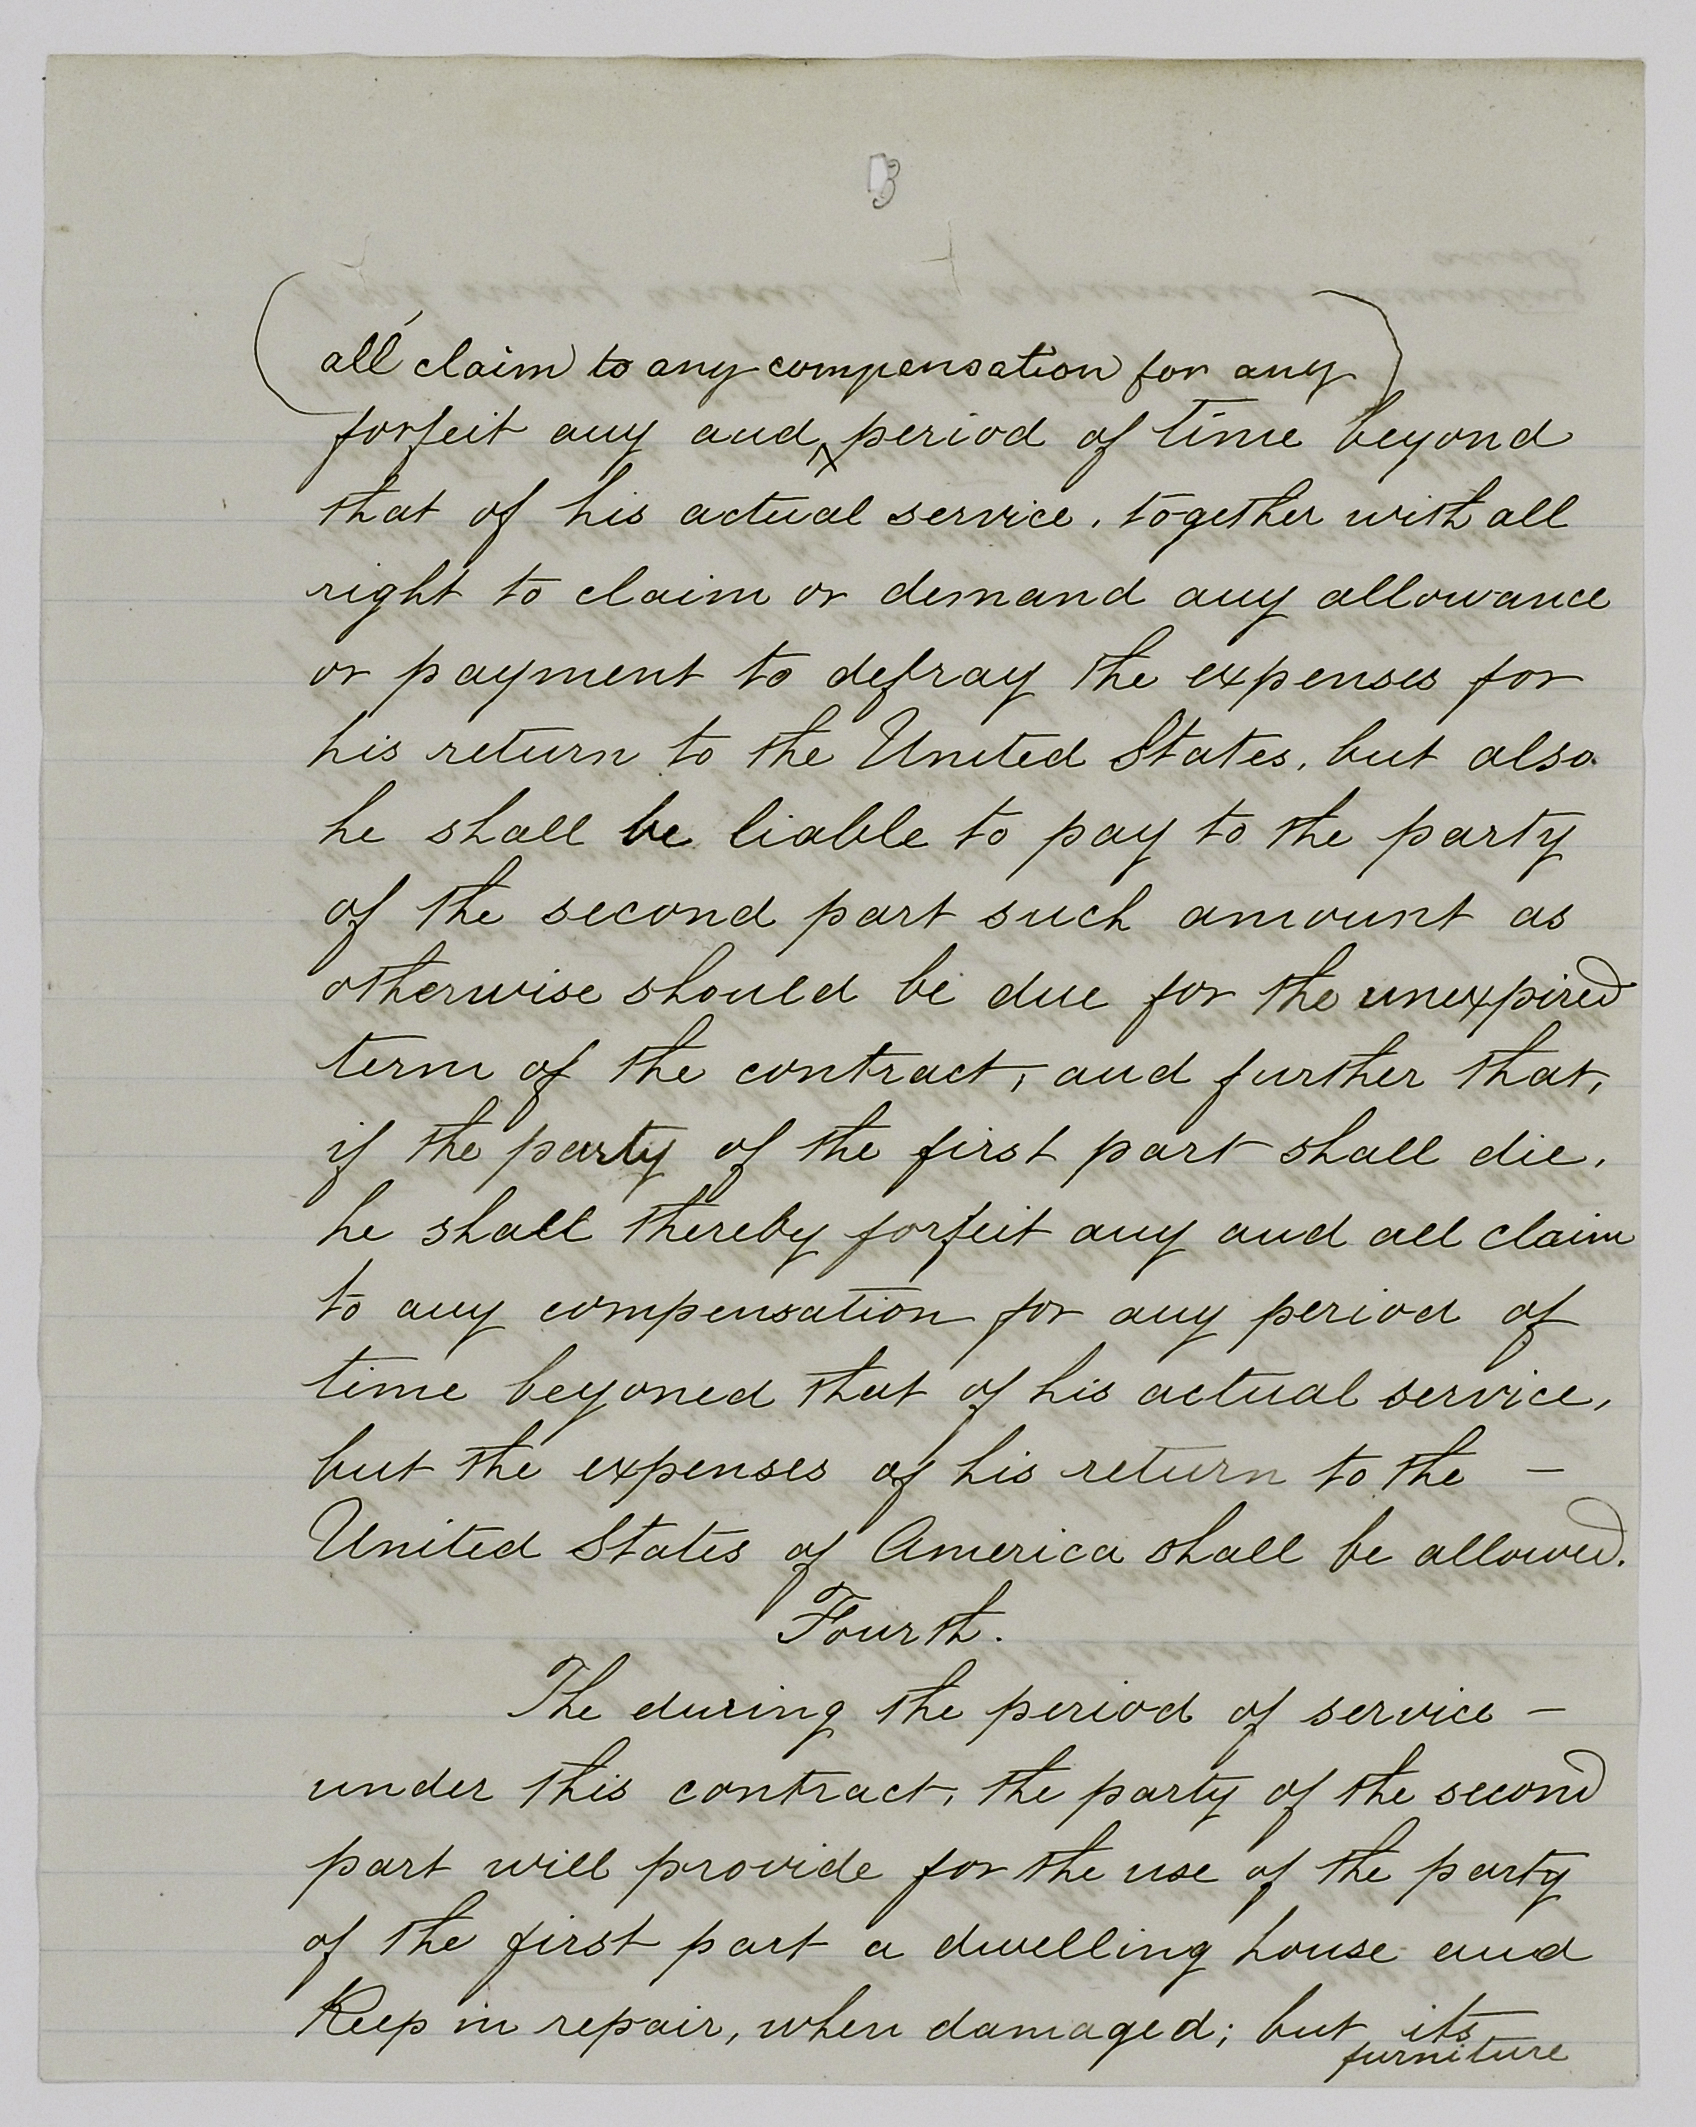 3
all claim to any compensation for any
forfeit any and period of time beyond
that of his actual service, together with all
right to claim or demand any allowance
or payment to defray the expenses for
his return to the United States, but also
he shall be liable to pay to the party
of the second part such amount as
otherwise should be due for the unexpired
term of the contract, and further that,
if the party of the first part shall die,
he shall thereby forfeit any and all claim
to any compensation for any period of
time beyoned that of his actual service,
but the expenses of his return to the —
United States of America shall be allowed.
Fourth.
The during the period of service —
under this contract, the party of the second
part will provide for the use of the party
of the first part a dwelling house and
Keep in repair, when damaged; but its
furniture